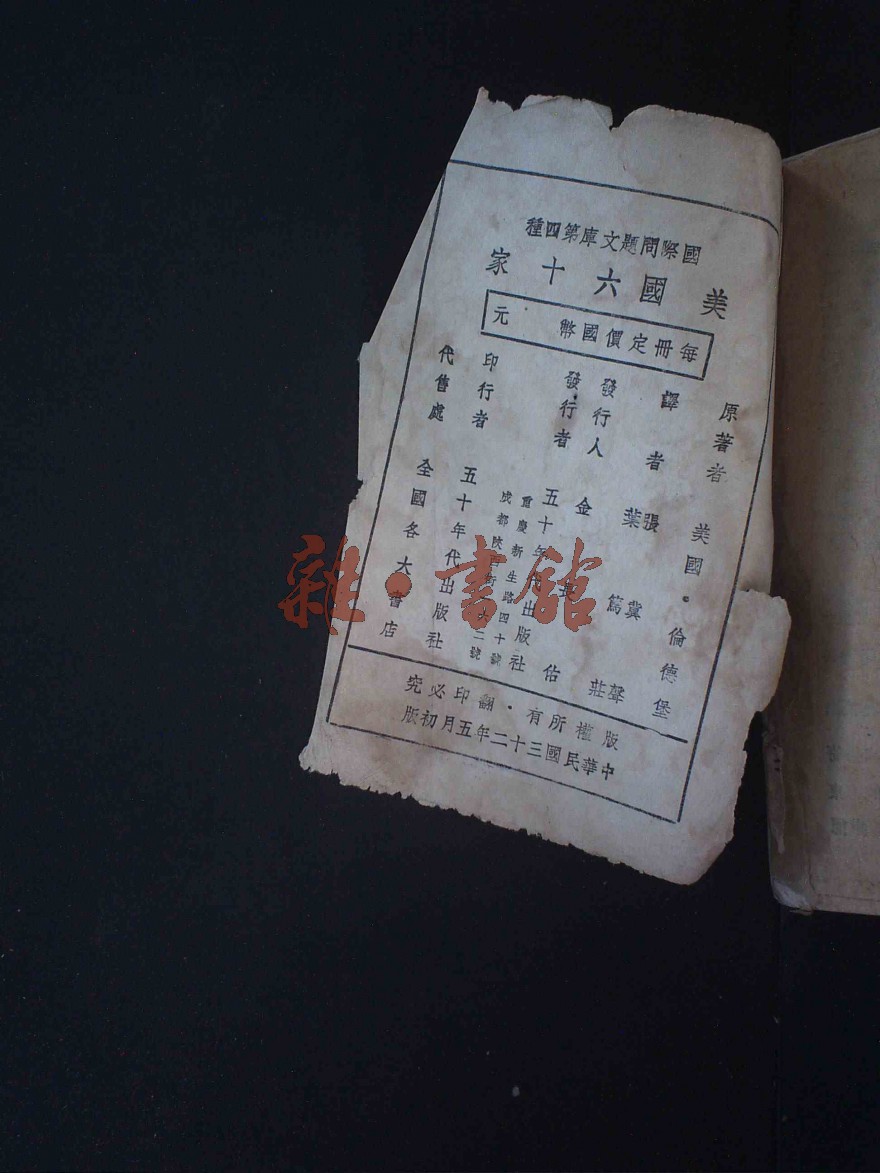 國際問題文庫第四種
美國六十家
每冊定價國幣　元
原著者　美國·倫德堡
譯者　張冀聲
葉篤莊
發行人　金長佑
發行者　五十年代出版社
重慶新生路四十號
成都陝西街六二號
印行者　五十年代出版社
代售處　全國各大書店
版權所有·翻印必究
中華民國三十二年五月初版
雜·書館